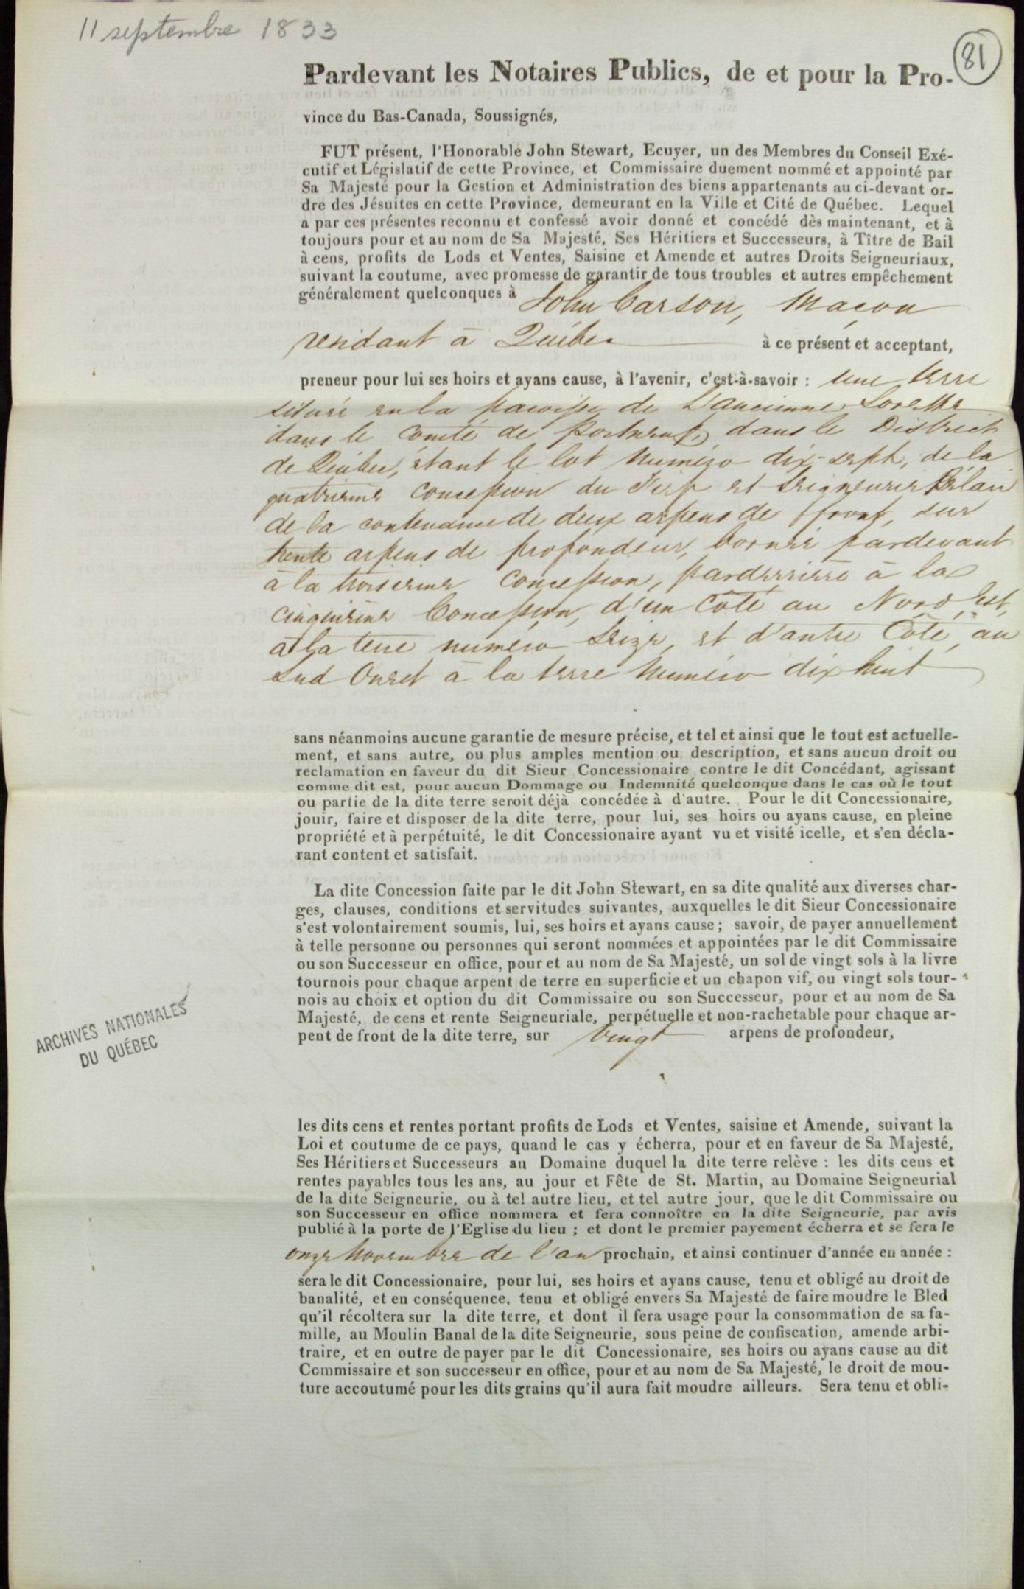 11 septembre 1833
81
Pardevant les Notaires Publics, de et pour la Pro-
vince du Bas-Canada, Soussignés,
FUT présent, l'Honorable John Stewart, Ecuyer, un des Membres du Conseil Exé-
cutif et Législatif de cette Province, et Commissaire duement nommé et appointé par
Sa Majesté pour la Gestion et Administration des biens appartenants au ci-devant or-
dre des Jésuites en cette Province, demeurant en la Ville et Cité de Québec. Lequel
a par ces présentes reconnu et confessé avoir donné et concédé dès maintenant, et à
toujours pour et au nom de Sa Majesté, Ses Héritiers et Successeurs, à Tître de Bail
à cens, profits de Lods et Ventes, Saisine et Amende et autres Droits Seigneuriaux,
suivant la coutume, avec promesse de garantir de tous troubles et autres empêchement
généralement quelconques à John Carson, Maçon
résidant à Québec à ce présent et acceptant,
preneur pour lui ses hoirs et ayans cause, à l'avenir, c'est-à-savoir : une terre
située en la paroisse de L'ancienne Lorette
dans le Comté de Portneuf, dans le District
de Québec, étant le lot numéro dix-sept, de la
quatrieme concession du Fief et Seigneurie Bélair
de la contenance de deux arpens de front, sur
trente arpens de profondeur, bornée pardevant
à la troisieme Concession, parderrière à la
cinquième Concession, d'un côté au Nord Est,
à la terre numéro Seize, et d'autre Côté, au
Sud Ouest à la terre Numéro dix huit
sans néanmoins aucune garantie de mesure précise, et tel et ainsi que le tout est actuelle-
ment, et sans autre, ou plus amples mention ou description, et sans aucun droit ou
reclamation en faveur du dit Sieur Concessionaire contre le dit Concédant, agissant
comme dit est, pour aucun Dommage ou Indemnité quelconque dans le cas où le tout
ou partie de la dite terre seroit déjà concédée à d'autre. Pour le dit Concessionaire,
jouir, faire et disposer de la dite terre, pour lui, ses hoirs ou ayans cause, en pleine
propriété et à perpétuité, le dit Concessionaire ayant vu et visité icelle, et s'en décla-
rant content et satisfait.
La dite Concession faite par le dit John Stewart, en sa dite qualité aux diverses char-
ges, clauses, conditions et servitudes suivantes, auxquelles le dit Sieur Concessionaire
s'est volontairement soumis, lui, ses hoirs et ayans cause ; savoir, de payer annuellement
à telle personne ou personnes qui seront nommées et appointées par le dit Commissaire
ou son Successeur en office, pour et au nom de Sa Majesté, un sol de vingt sols à la livre
tournois pour chaque arpent de terre en superficie et un chapon vif, ou vingt sols tour-
nois au choix et option du dit Commissaire ou son Successeur, pour et au nom de Sa
Majesté, de cens et rente Seigneuriale, perpétuelle et non-rachetable pour chaque ar-
pent de front de la dite terre, sur Vingt arpens de profondeur,
ARCHIVES NATIONALES
DU QUÉBEC
les dits cens et rentes portant profits de Lods et Ventes, saisine et Amende, suivant la
Loi et coutume de ce pays, quand le cas y écherra, pour et en faveur de Sa Majesté,
Ses Héritiers et Successeurs au Domaine duquel la dite terre relève : les dits cens et
rentes payables tous les ans, au jour et Fête de St. Martin, au Domaine Seigneurial
de la dite Seigneurie, ou à tel autre lieu, et tel autre jour, que le dit Commissaire ou
son Successeur en office nommera et fera connoître en la dite Seigneurie, par avis
publié à la porte de l'Eglise du lieu ; et dont le premier payement écherra et se fera le
onze Novembre de l'an prochain, et ainsi continuer d'année en année :
sera le dit Concessionaire, pour lui, ses hoirs et ayans cause, tenu et obligé au droit de
banalité, et en conséquence, tenu et obligé envers Sa Majesté de faire moudre le Bled
qu'il récoltera sur la dite terre, et dont il fera usage pour la consommation de sa fa-
mille, au Moulin Banal de la dite Seigneurie, sous peine de confiscation, amende arbi-
traire, et en outre de payer par le dit Concessionaire, ses hoirs ou ayans cause au dit
Commissaire et son successeur en office, pour et au nom de Sa Majesté, le droit de mou-
ture accoutumé pour les dits grains qu'il aura fait moudre ailleurs. Sera tenu et obli-